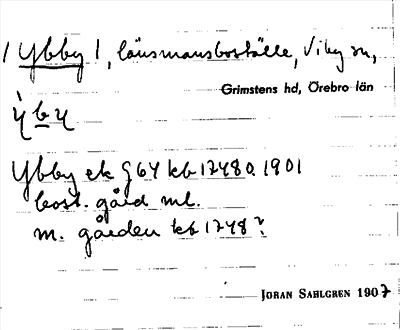 / Ybby /, länsmansboställe, Viby sn,
Grimstens hd, Örebro län
ỳ b y
Ybby ek G 64 kb 1748 o. 1901
bost. gård ml.
m. gården kb 1748?
JÖRAN SAHLGREN 1907